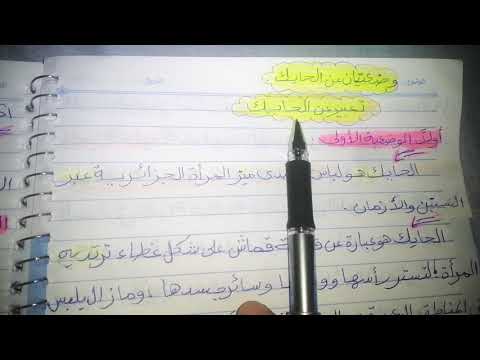 وضعيتان عن الحايك
تعبير عن الحايك
أولا: الوضعية الأولى
الحايك هو لباس ميز المرأة الجزائرية عبر
السنين والأزمان.
الحايك هو عبارة عن قماش على شكل غطاء ترتديه
المرأة لتستر رأسها و وسائر جسدها، وما زال يلبس
المناطق